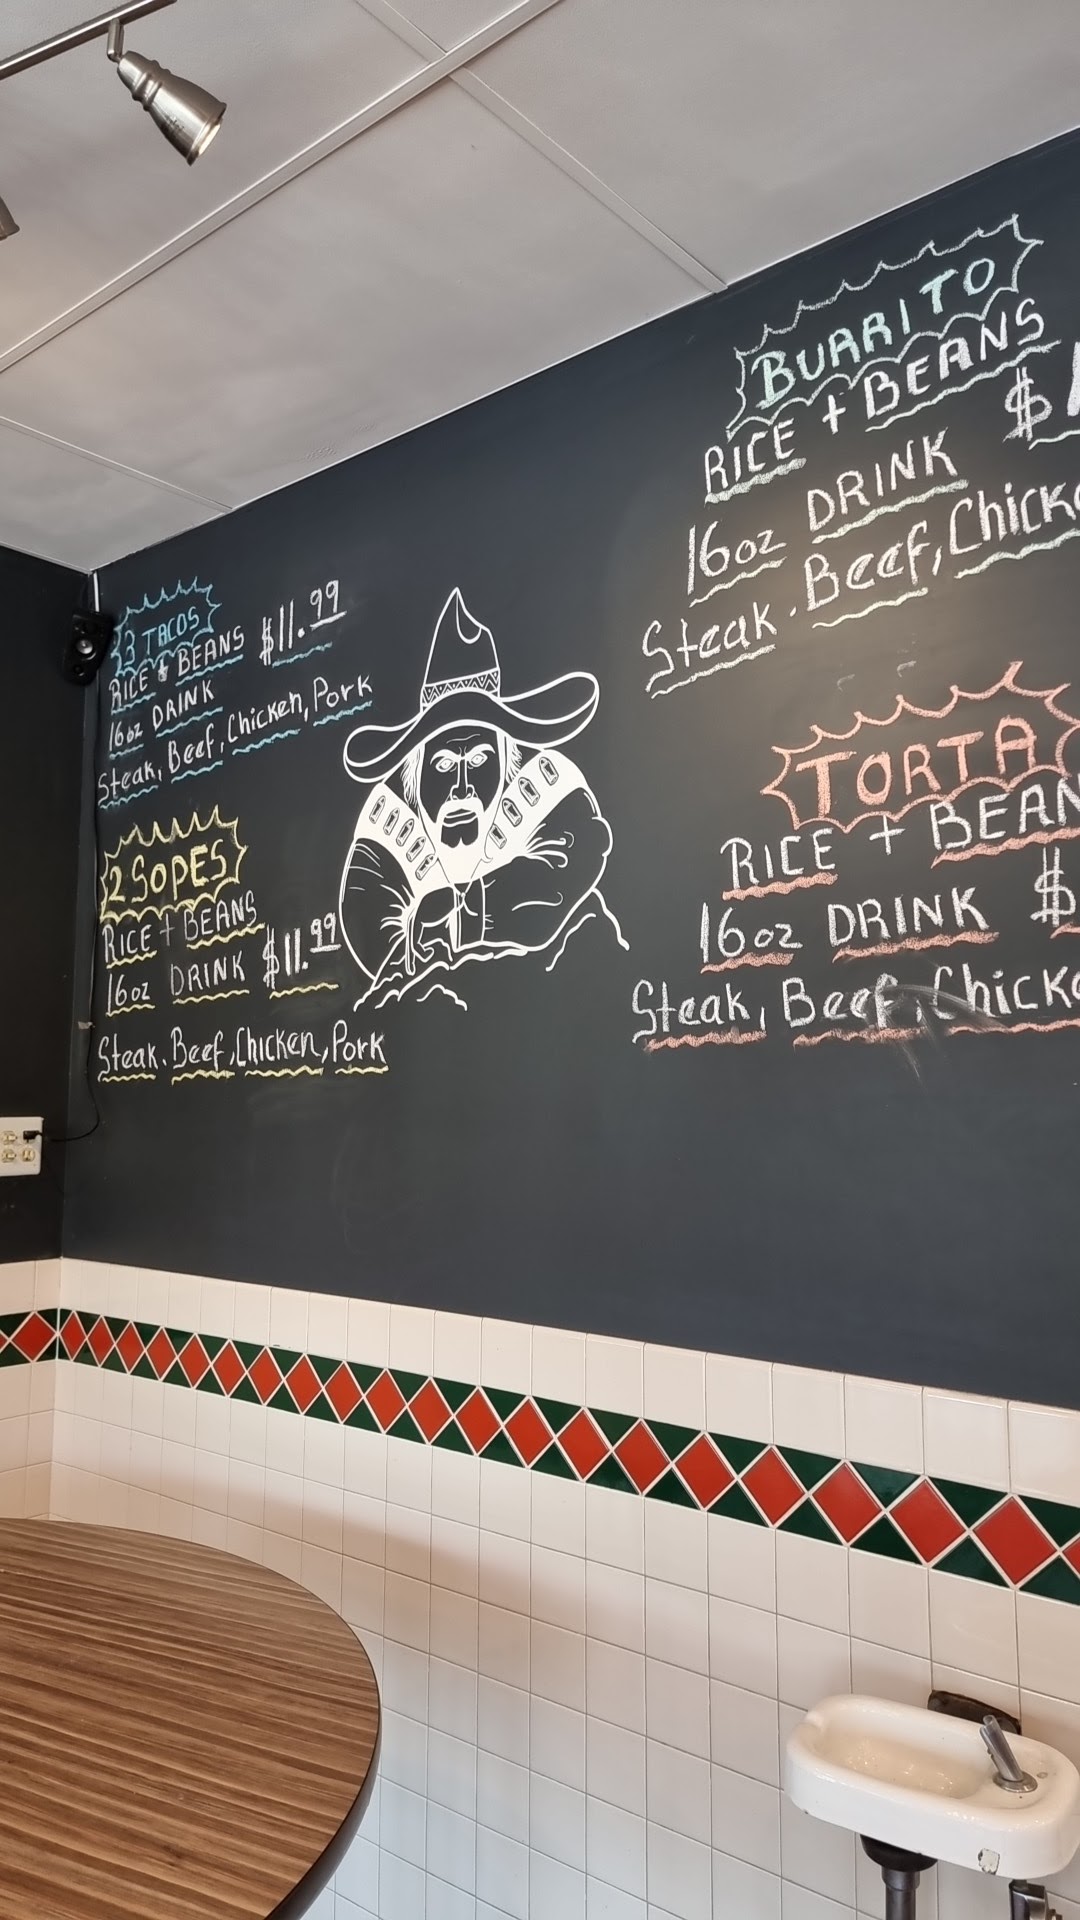 3 TACOS
RICE + BEANS $11.99
16oz DRINK
Steak, Beef, Chicken, Pork
2 SOPES
RICE + BEANS
16oz DRINK $11.99
Steak. Beef, Chicken, Pork
BURRITO
RICE + BEANS
16oz DRINK $1
Steak. Beef, Chicke
TORTA
RICE + BEAN
16oz DRINK $
Steak, Beef, Chicke